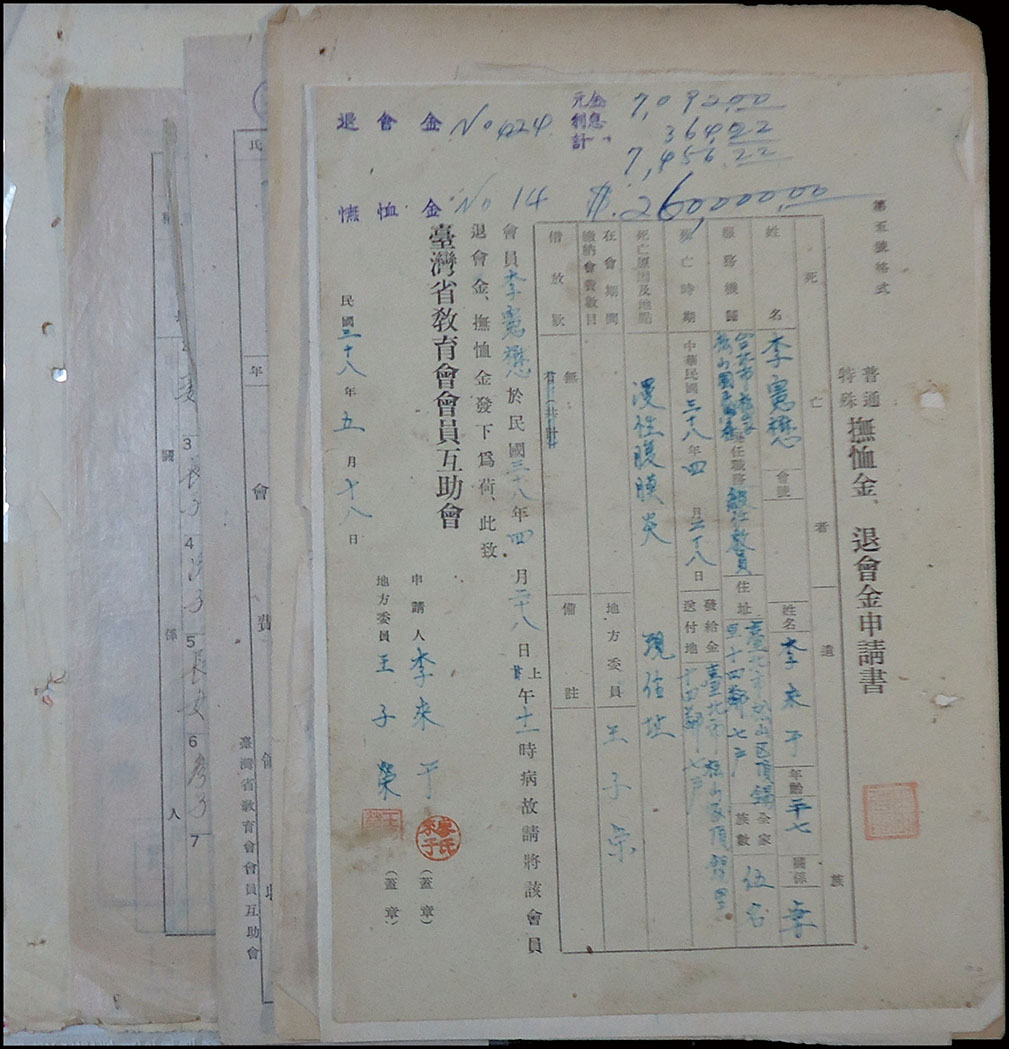 第五號格式
普通
特殊
撫恤金、退會金申請書
死亡者
遺族
姓名 李憲懋 會號
姓名 李來于 年齡 卅七 關係 妻
服務機關 原任職務 級任教員
住址
全家族數 伍名
死亡時期 中華民國三十八年四月二十八日
發給金送付地
死亡原因及地點 慢性腹膜炎 現住址
在會期間
地方委員 王子榮
繳納會費數目
借放款 無
備註
會員李憲懋於民國三十八年四月二十八日上午十一時病故請將該會員
退會金、撫恤金發下爲荷、此致
臺灣省教育會會員互助會
申請人 李來于 (蓋章)
地方委員 王子榮 (蓋章)
民國三十八年五月十八日
退會金 No 424
撫恤金 No 14
元金 7,092.00
利息 364.22
計 7,456.22
260,000.00
氏
年
會
費
領
臺灣省教育會會員互助會
3 長子
4 次子
5 長女
6 參子
7
關
係
人